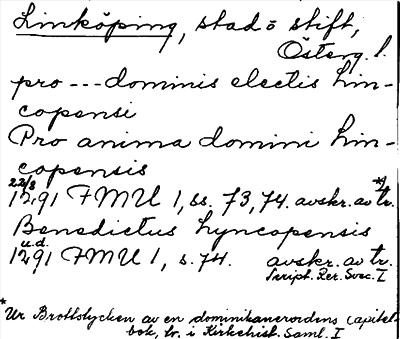 Linköping, stad o stift,
Österg. l.
pro --- dominis electis Lin-
copensi
Pro anima domini Lin-
copensis
22/8 *)
1291 FMU 1, ss. 73, 74. avskr. av tr.
Benedictus Lyncopensis
u.d.
1291 FMU 1, s. 74. avskr. av tr.
Script. Rer. Svec. I
* Ur Brottstycken av en dominikanerordens capitel-
bok, tr. i Kirkehist. Saml. I